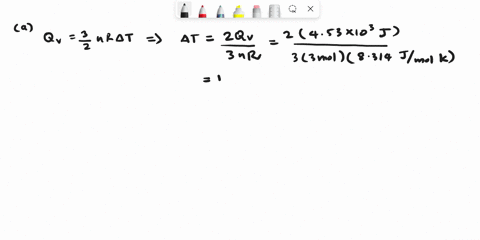 (a) Qv = 3/2 nRΔT => ΔT = 2Qv / 3nR = 2(4.53×10³ J) / 3(3mol)(8.314 J/mol k)
= 1